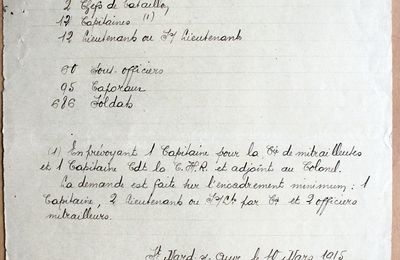 2 Chefs de Bataillon
12 Capitaines (1)
12 Lieutenants ou S/ Lieutenants
60 Sous-officiers
95 Caporaux
686 Soldats
(1) En prévoyant 1 Capitaine pour la Cie de mitrailleuses
et 1 Capitaine Cdt la C.H.R. et adjoint au Colonel.
La demande est faite sur l'encadrement minimum : 1
Capitaine, 2 Lieutenants ou S/Lt par Cie et 2 officiers
mitrailleurs.
St Mard s/ le 10 Mars 1915